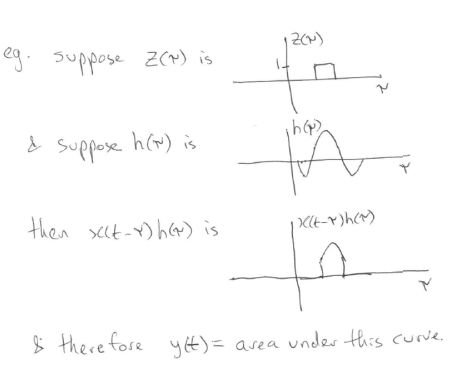 eg. suppose z(τ) is
z(τ)
1
τ
& suppose h(τ) is
h(τ)
τ
then x(t-τ)h(τ) is
x(t-τ)h(τ)
τ
& therefore y(t) = area under this curve.